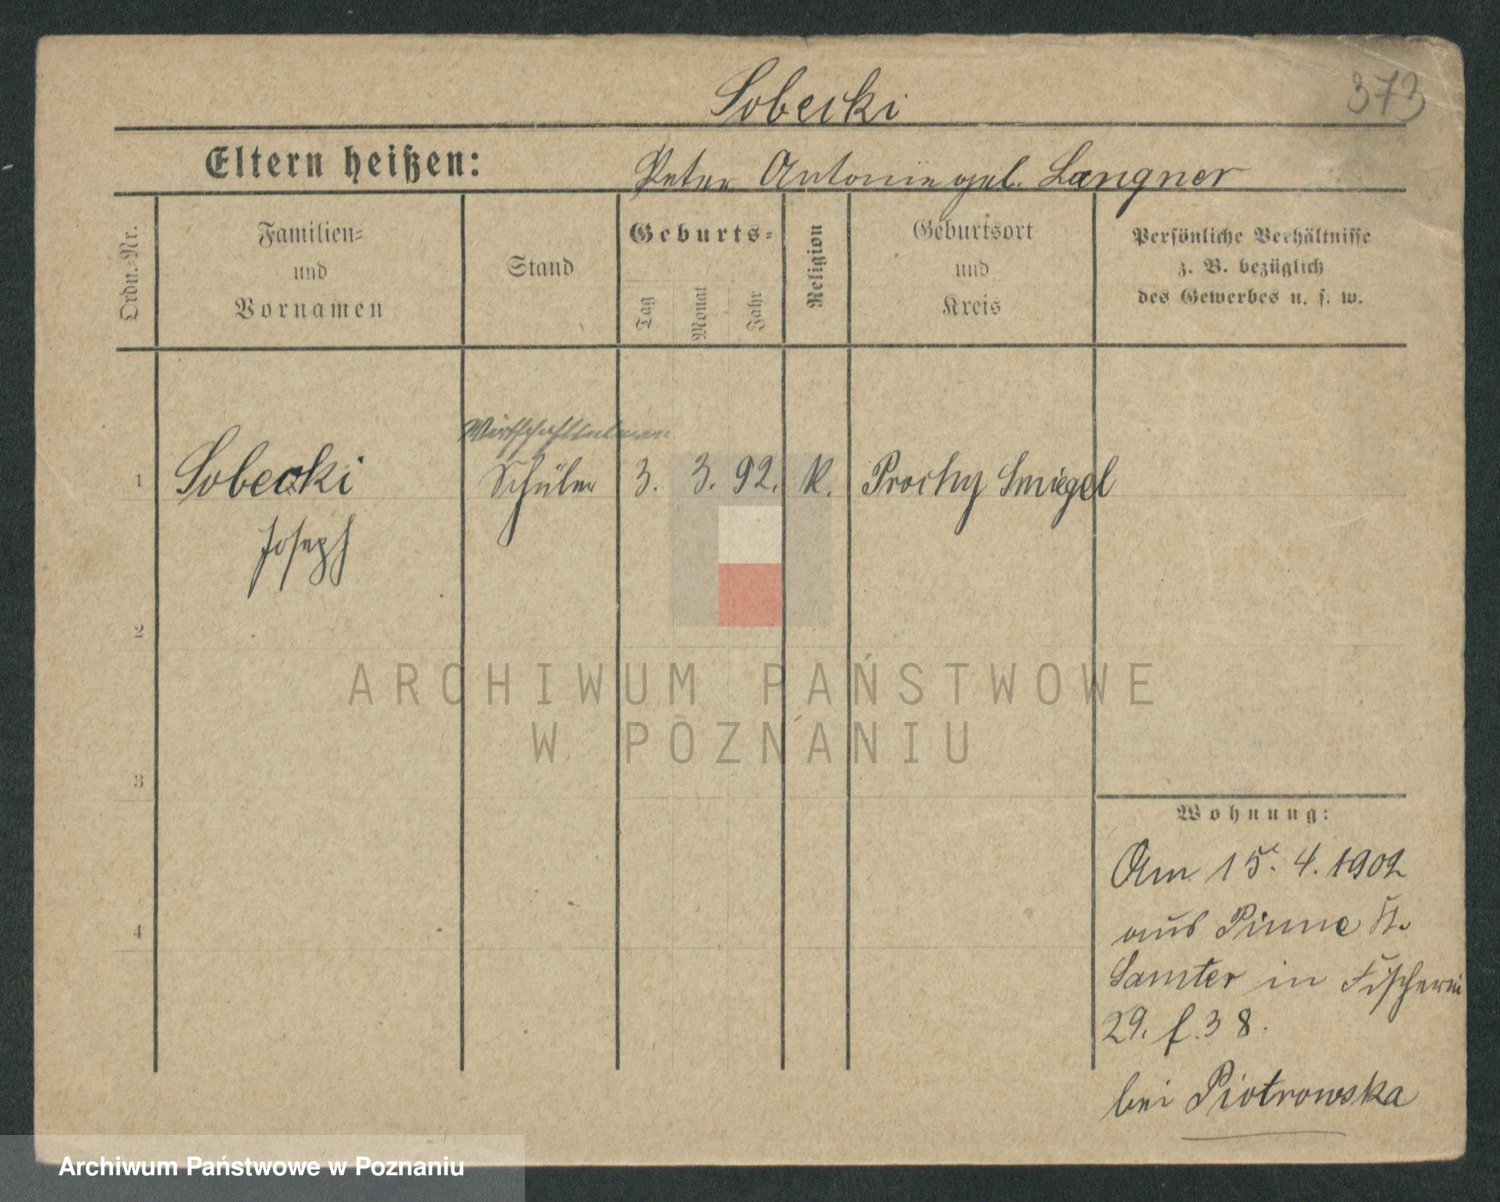 373
Sobecki
Eltern heißen: Peter Antonie geb. Langner
Ordn.-Nr.
Familien-
und
Vornamen
Stand
Geburts-
Tag
Monat
Jahr
Religion
Geburtsort
und
Kreis
Persönliche Verhältnisse
z. B. bezüglich
des Gewerbes u. s. w.
1 Sobecki Schüler 3. 3. 92. K. Prochy Smiegel
Joseph
2
3
4
Wohnung:
Am 15. 4. 1902
aus Pinne K.
Samter in Fischerei
29. f. 38.
bei Piotrowska
ARCHIWUM PAŃSTWOWE
W POZNANIU
Archiwum Państwowe w Poznaniu